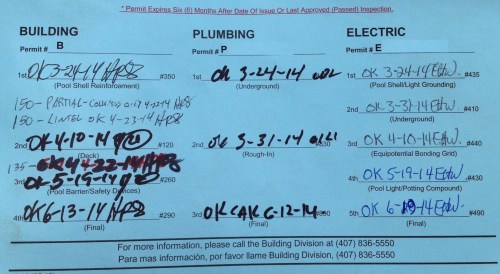 * Permit Expires Six (6) Months After Date Of Issue Or Last Approved (Passed) Inspection.
BUILDING
Permit # B
1st OK 3-24-14 #350
(Pool Shell Reinforcement)
150- PARTIAL- 4-22-14
150- LINTEL OK 4-23-14
2nd OK 4-10-14 #120
(Deck)
135- OK 4-22-14
3rd OK 5-19-14 #260
(Pool Barrier/Safety Devices)
4th OK 6-13-14 #290
(Final)
PLUMBING
Permit # P
1st OK 3-24-14
(Underground)
2nd OK 3-31-14 #330
(Rough-In)
3rd OK 6-12-14
(Final)
ELECTRIC
Permit # E
1st OK 3-24-14 #435
(Pool Shell/Light Grounding)
2nd OK 3-31-14 #410
(Underground)
3rd OK 4-10-14 #440
(Equipotential Bonding Grid)
4th OK 5-19-14 #430
(Pool Light/Potting Compound)
5th OK 6-19-14 #490
(Final)
For more information, please call the Building Division at (407) 836-5550
Para mas información, por favor llame Building Division, at (407) 836-5550